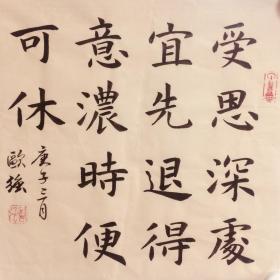 受思深處
宜先退得
意濃時便
可休
庚子三月
歐強